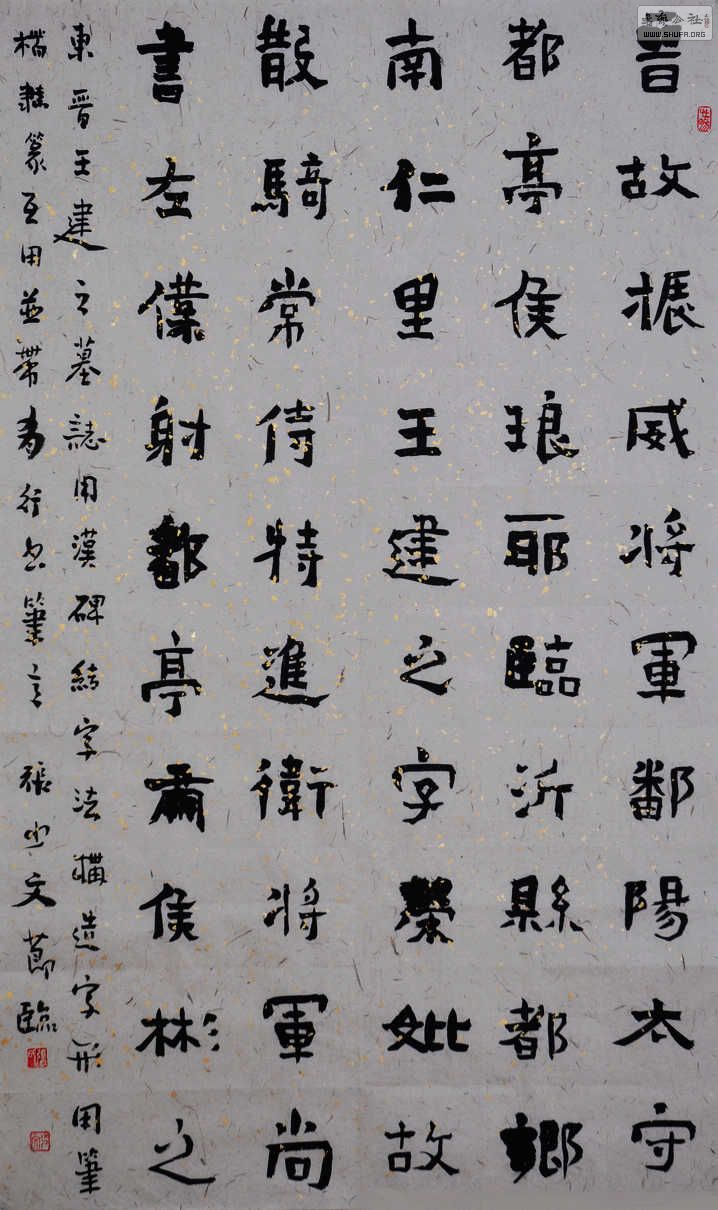 晉故振威將軍鄱陽太守
都亭侯琅耶臨沂縣都鄉
南仁里王建之字榮妣故
散騎常侍特進衛將軍尚
書左僕射都亭肅侯彬之
東晉王建之墓誌用漢碑結字法構造字形用筆
楷隸篆互用並帶有行書筆意 張 文節臨
WWW.SHUFA.ORG